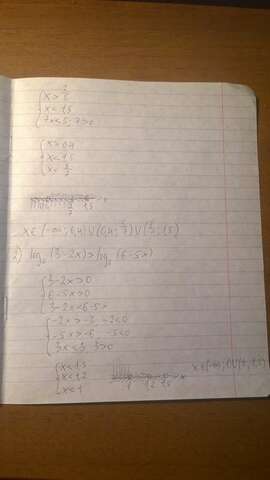 x > 2/5
x < 1,5
7x < 5; 7>0
x > 0,4
x < 1,5
x < 5/7
x ∈ (-∞; 0,4) ∪ (0,4; 5/7) ∪ (5/7; 1,5)
2) log (3-2x) > log (6-5x)
3-2x>0
6-5x>0
3-2x<6-5x
-2x > -3, -2<0
-5x > -6, -5<0
3x < 3, 3>0
x < 1,5
x < 1,2
x < 1
1 1,2 1,5 x